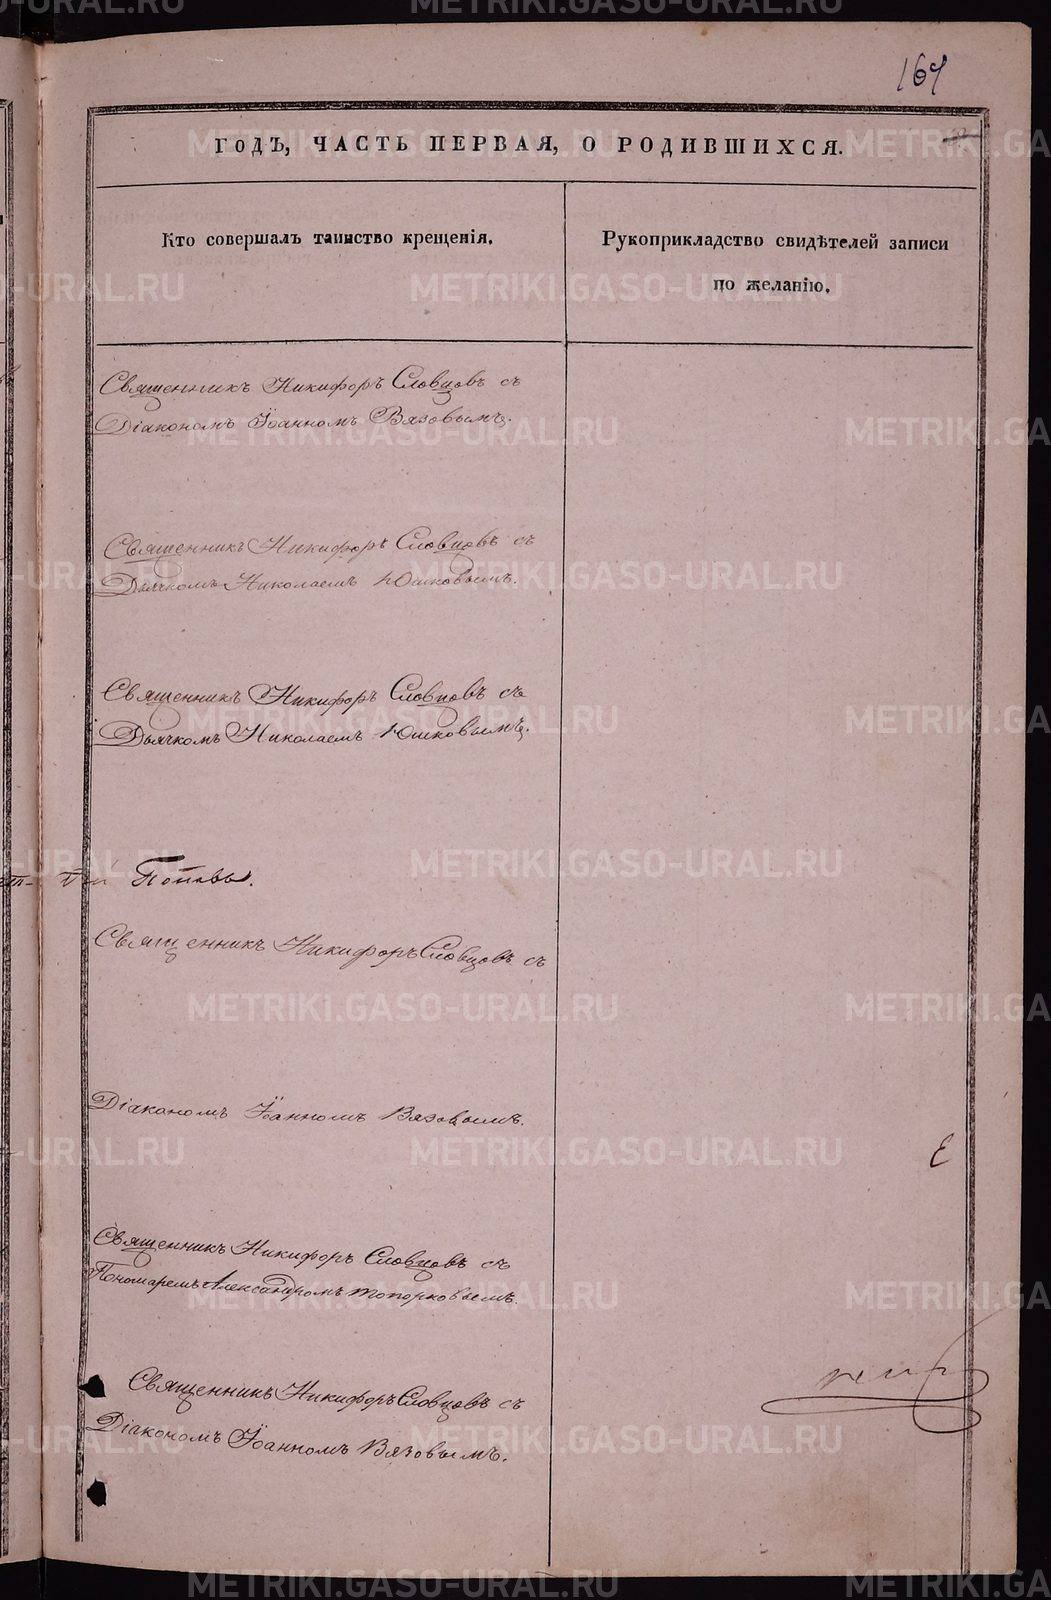 167
ГОДЪ, ЧАСТЬ ПЕРВАЯ, О РОДИВШИХСЯ.
Кто совершалъ таинство крещенія.
Рукоприкладство свидѣтелей записи
по желанію.
Священникъ Никифоръ Словцовъ съ
Діакономъ Іоанномъ Вязовымъ.
Священникъ Никифоръ Словцовъ съ
Дьячкомъ Николаемъ Юшковымъ.
Священникъ Никифоръ Словцовъ съ
Дьячкомъ Николаемъ Юшковымъ.
Поповы.
Священникъ Никифоръ Словцовъ съ
Діакономъ Іоанномъ Вязовымъ.
Священникъ Никифоръ Словцовъ съ
Пономаремъ Александромъ Топорковымъ.
Священникъ Никифоръ Словцовъ съ
Діакономъ Іоанномъ Вязовымъ.
METRIKI.GASO-URAL.RU